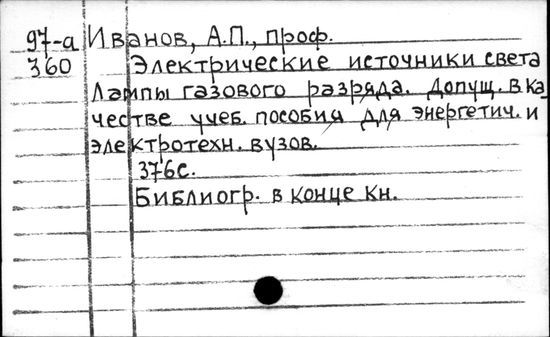 97-а Иванов, А.П., проф.
360 Электрические источники света
Лампы газового разряда. Допущ. в ка
честве учеб. пособия для энергетич. и
электротехн. вузов.
376с.
Библиогр. в конце кн.